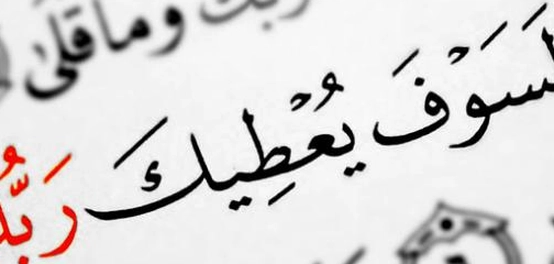 ربك وما قلى
لَسَوْفَ يُعْطِيكَ رَبُّكَ